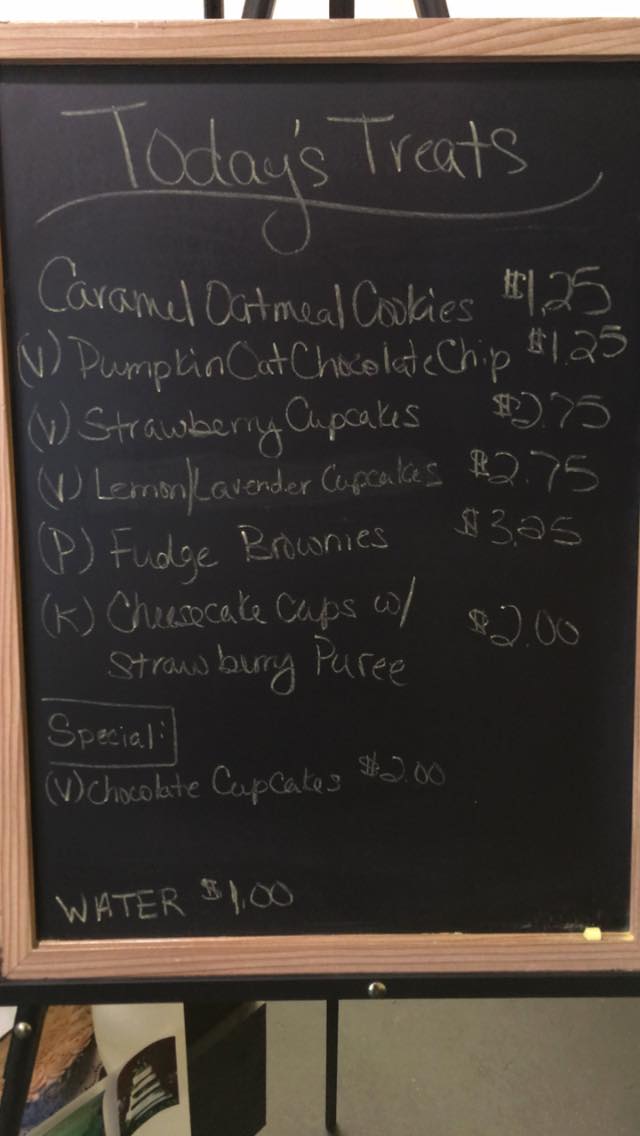 Today's Treats
Caramel Oatmeal Cookies $1.25
(V) Pumpkin Oat Chocolate Chip $1.25
(V) Strawberry Cupcakes $2.75
(V) Lemon/Lavender Cupcakes $2.75
(P) Fudge Brownies $3.25
(K) Cheesecake Cups w/ $2.00
Strawberry Puree
Special:
(V) Chocolate Cupcakes $2.00
WATER $1.00